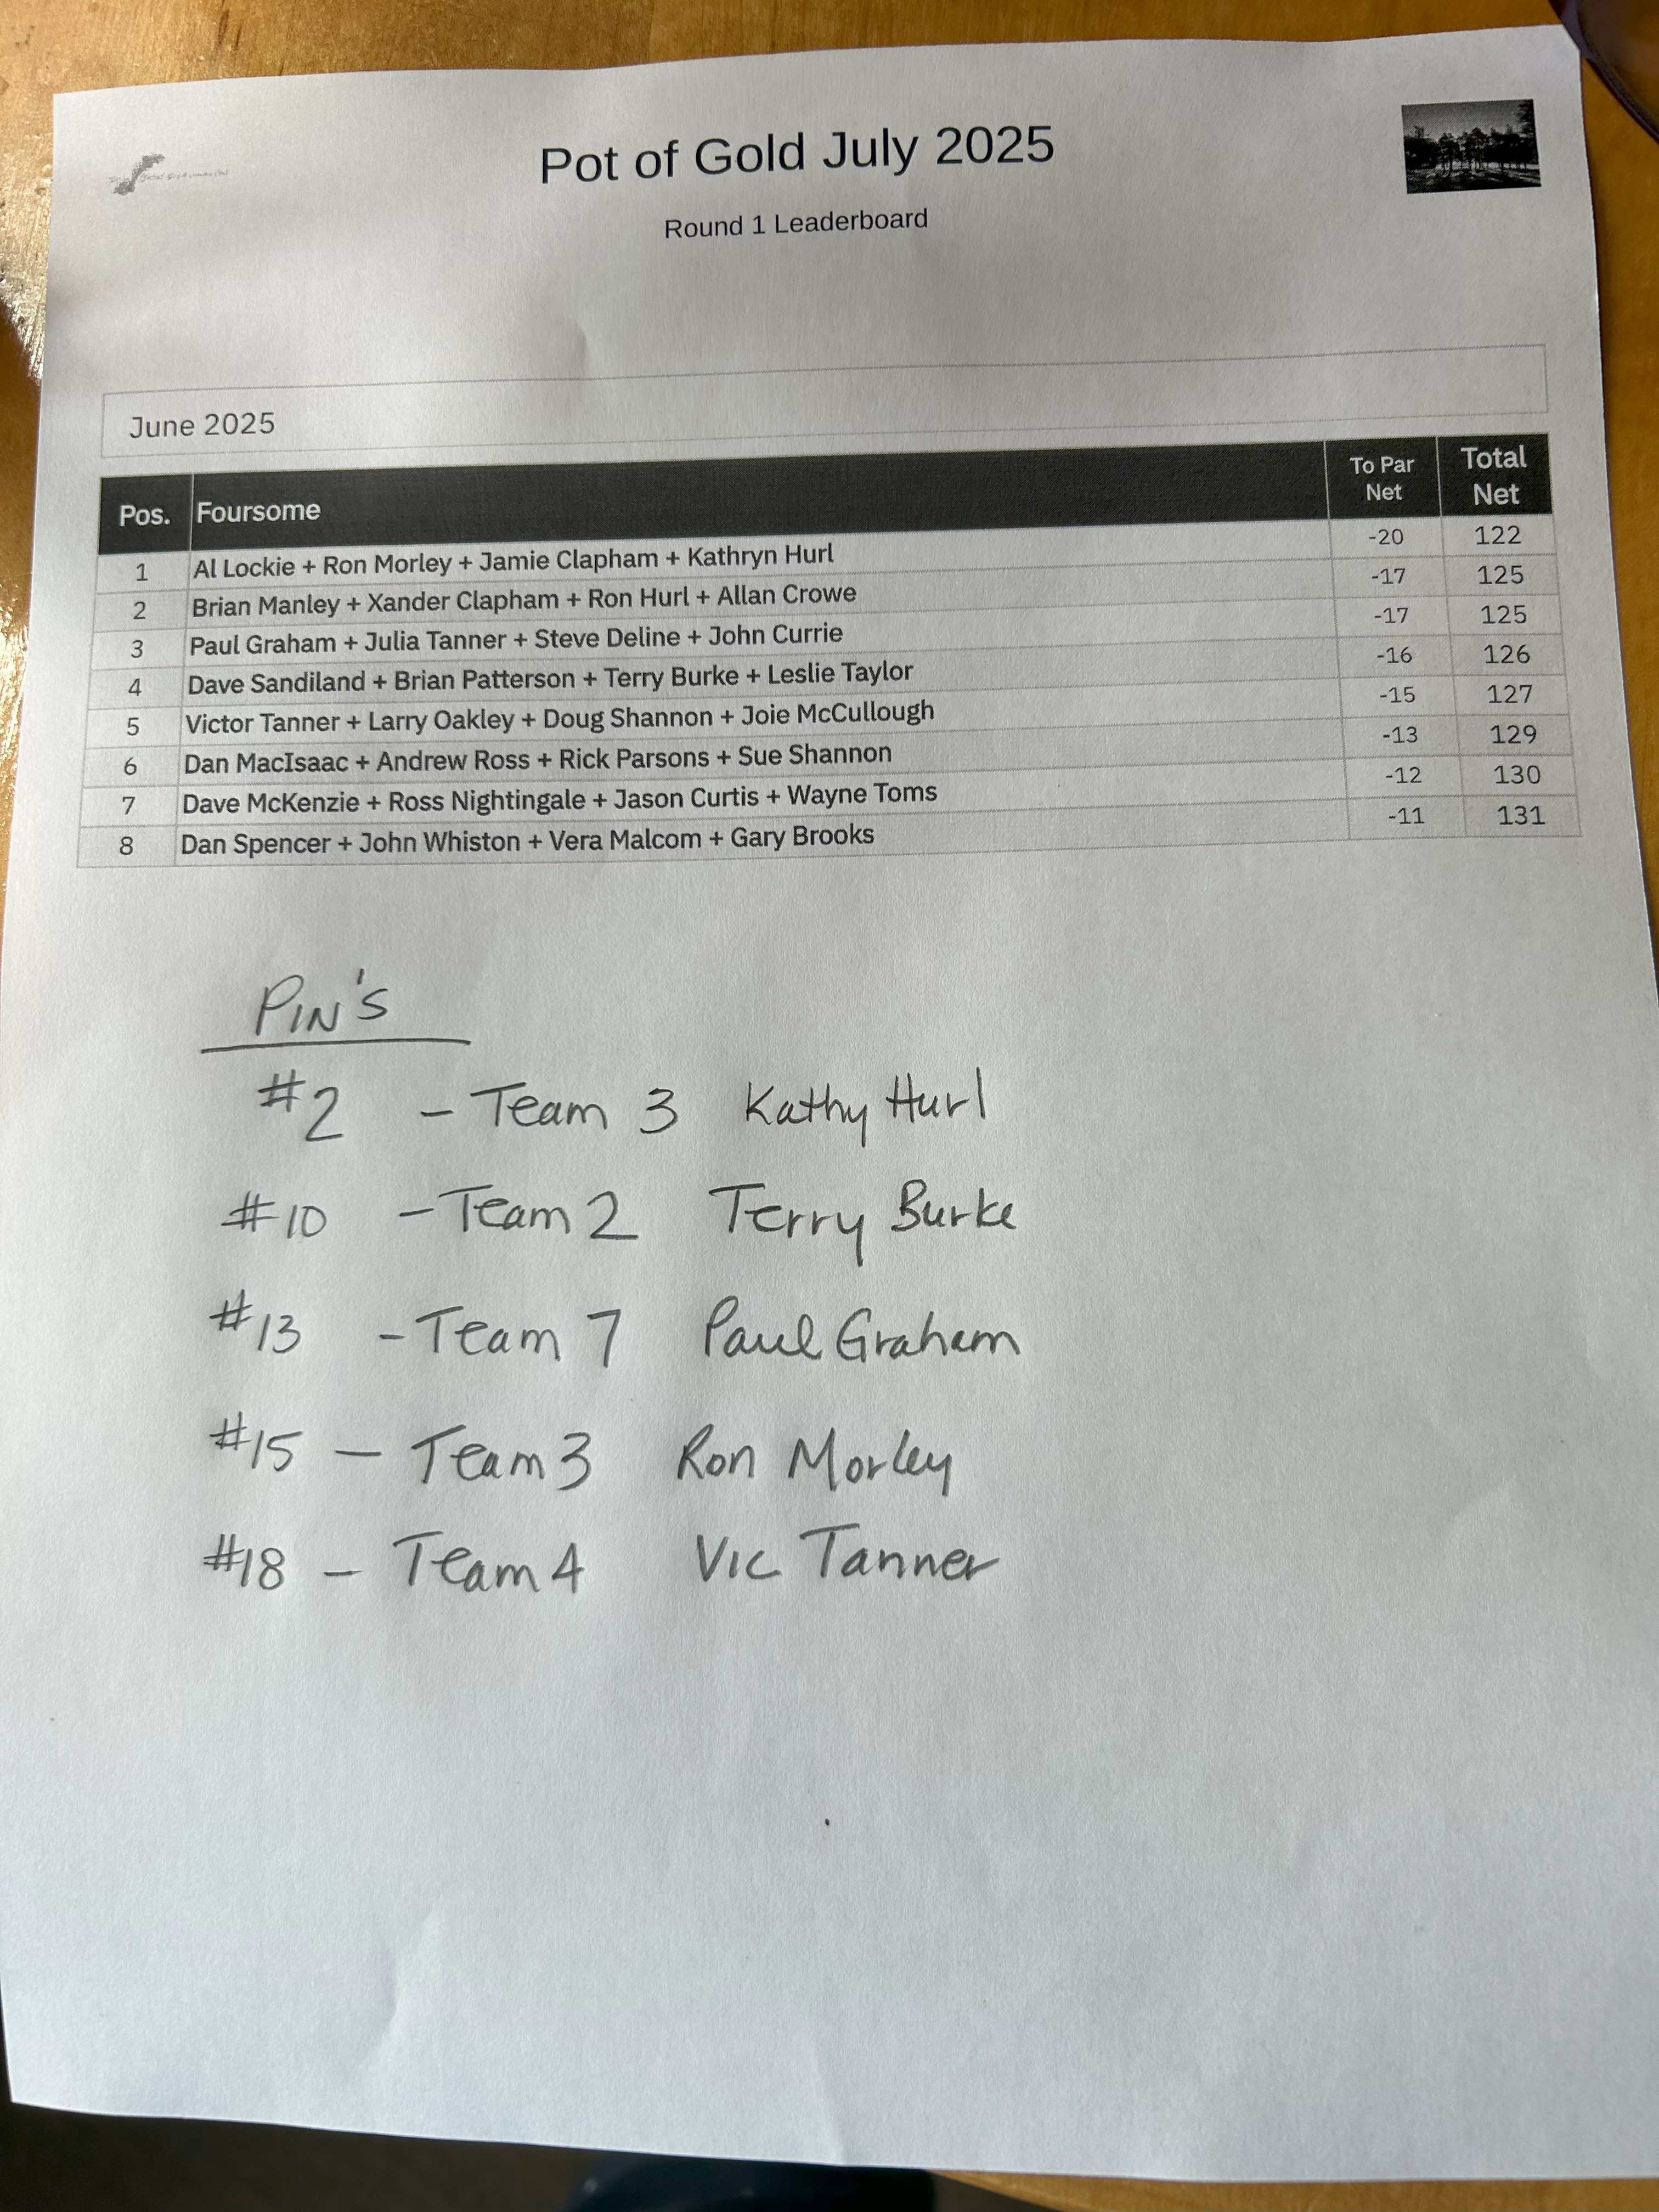 Pot of Gold July 2025
Round 1 Leaderboard
June 2025
Pos. Foursome To Par Net Total Net
1 Al Lockie + Ron Morley + Jamie Clapham + Kathryn Hurl -20 122
2 Brian Manley + Xander Clapham + Ron Hurl + Allan Crowe -17 125
3 Paul Graham + Julia Tanner + Steve Deline + John Currie -17 125
4 Dave Sandiland + Brian Patterson + Terry Burke + Leslie Taylor -16 126
5 Victor Tanner + Larry Oakley + Doug Shannon + Joie McCullough -15 127
6 Dan MacIsaac + Andrew Ross + Rick Parsons + Sue Shannon -13 129
7 Dave McKenzie + Ross Nightingale + Jason Curtis + Wayne Toms -12 130
8 Dan Spencer + John Whiston + Vera Malcom + Gary Brooks -11 131
PIN'S
#2 - Team 3 Kathy Hurl
#10 - Team 2 Terry Burke
#13 - Team 7 Paul Graham
#15 - Team 3 Ron Morley
#18 - Team 4 Vic Tanner